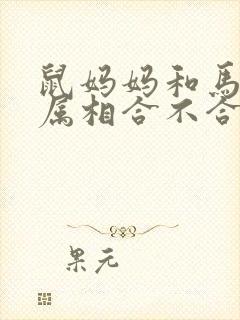 鼠妈妈和馬
属相合不合
果元